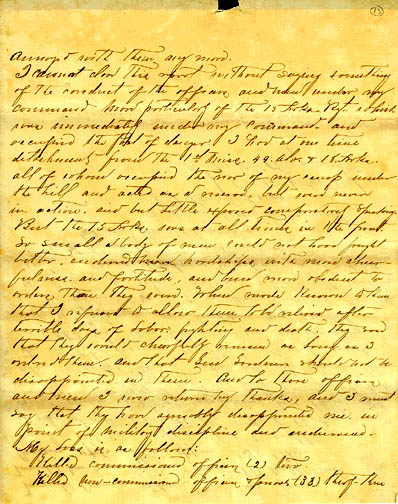 13
annoyed with them any more.
I cannot close this report without saying something
of the conduct of the officers and men under my
command more particularly of the 15 Arks. Regt which
were immediately under my command and
occupied the post of danger. I had at one time
detachments from the 1st Miss. 49 Ala. & 18 Arks.
all of whom occupied the rear of my camp under
the hill and acted as a reserve, but were never
in action, and but little exposed comparatively speaking.
But the 15 Arks. were at all times in the front
So small a body of men could not have fought
better, endured more hardships, with more cheer-
fulness and fortitude, and been more obedient to
orders, than they were. When made known to them
that I refused to allow them to be relieved after
terrible loss of labor fighting and death, they said
that they would cheerfully remain as long as I
ordered them, and that Genl Gardner should not be
disappointed in them. And to those officers
and men I now return my thanks, and I must
say that they have agreeably disappointed me, in
point of military discipline and endurance.
My loss is as follows:
Killed commissioned officers (2) two.
Killed non-commissioned officers & privates (33) thirty-three